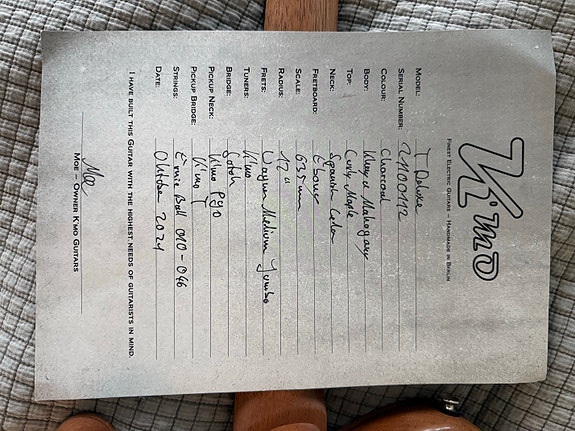 K'mo
Finest Electric Guitars – Handmade in Berlin
Model: T Deluxe
Serial Number: 24100112
Colour: Charcoal
Body: Khaya Mahogany
Top: Curly Maple
Neck: Spanish Cedar
Fretboard: Ebony
Scale: 635 mm
Radius: 12"
Frets: Wagner Medium Jumbo
Tuners: K'mo
Bridge: Gotoh
Pickup Neck: K'mo P90
Pickup Bridge: K'mo T
Strings: Ernie Ball 010-046
Date: Oktober 2024
I have built this Guitar with the highest needs of guitarists in mind.
Moe
Moe – Owner K'mo Guitars